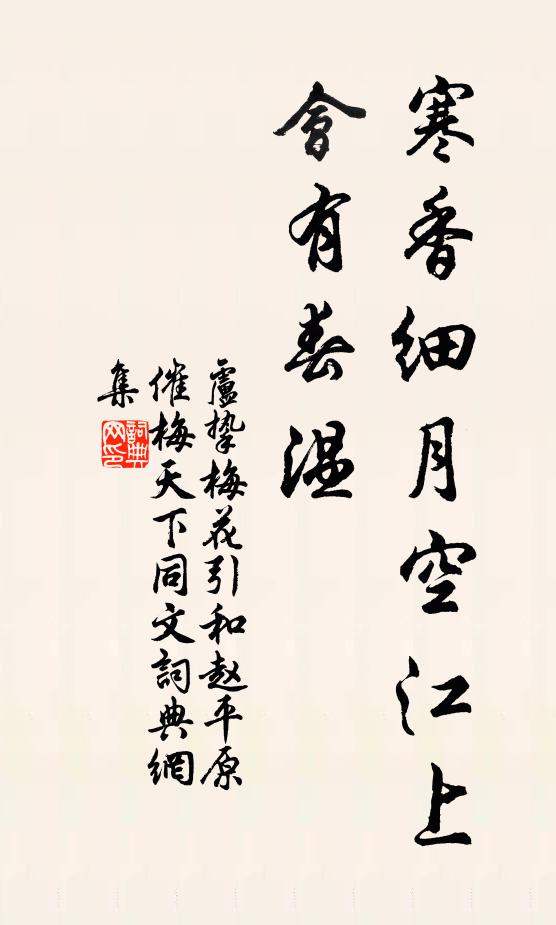 寒香细月空江上
會有春温
盧挚梅花引和赵平原
催梅天下同文詞典網
集
詞典
网印